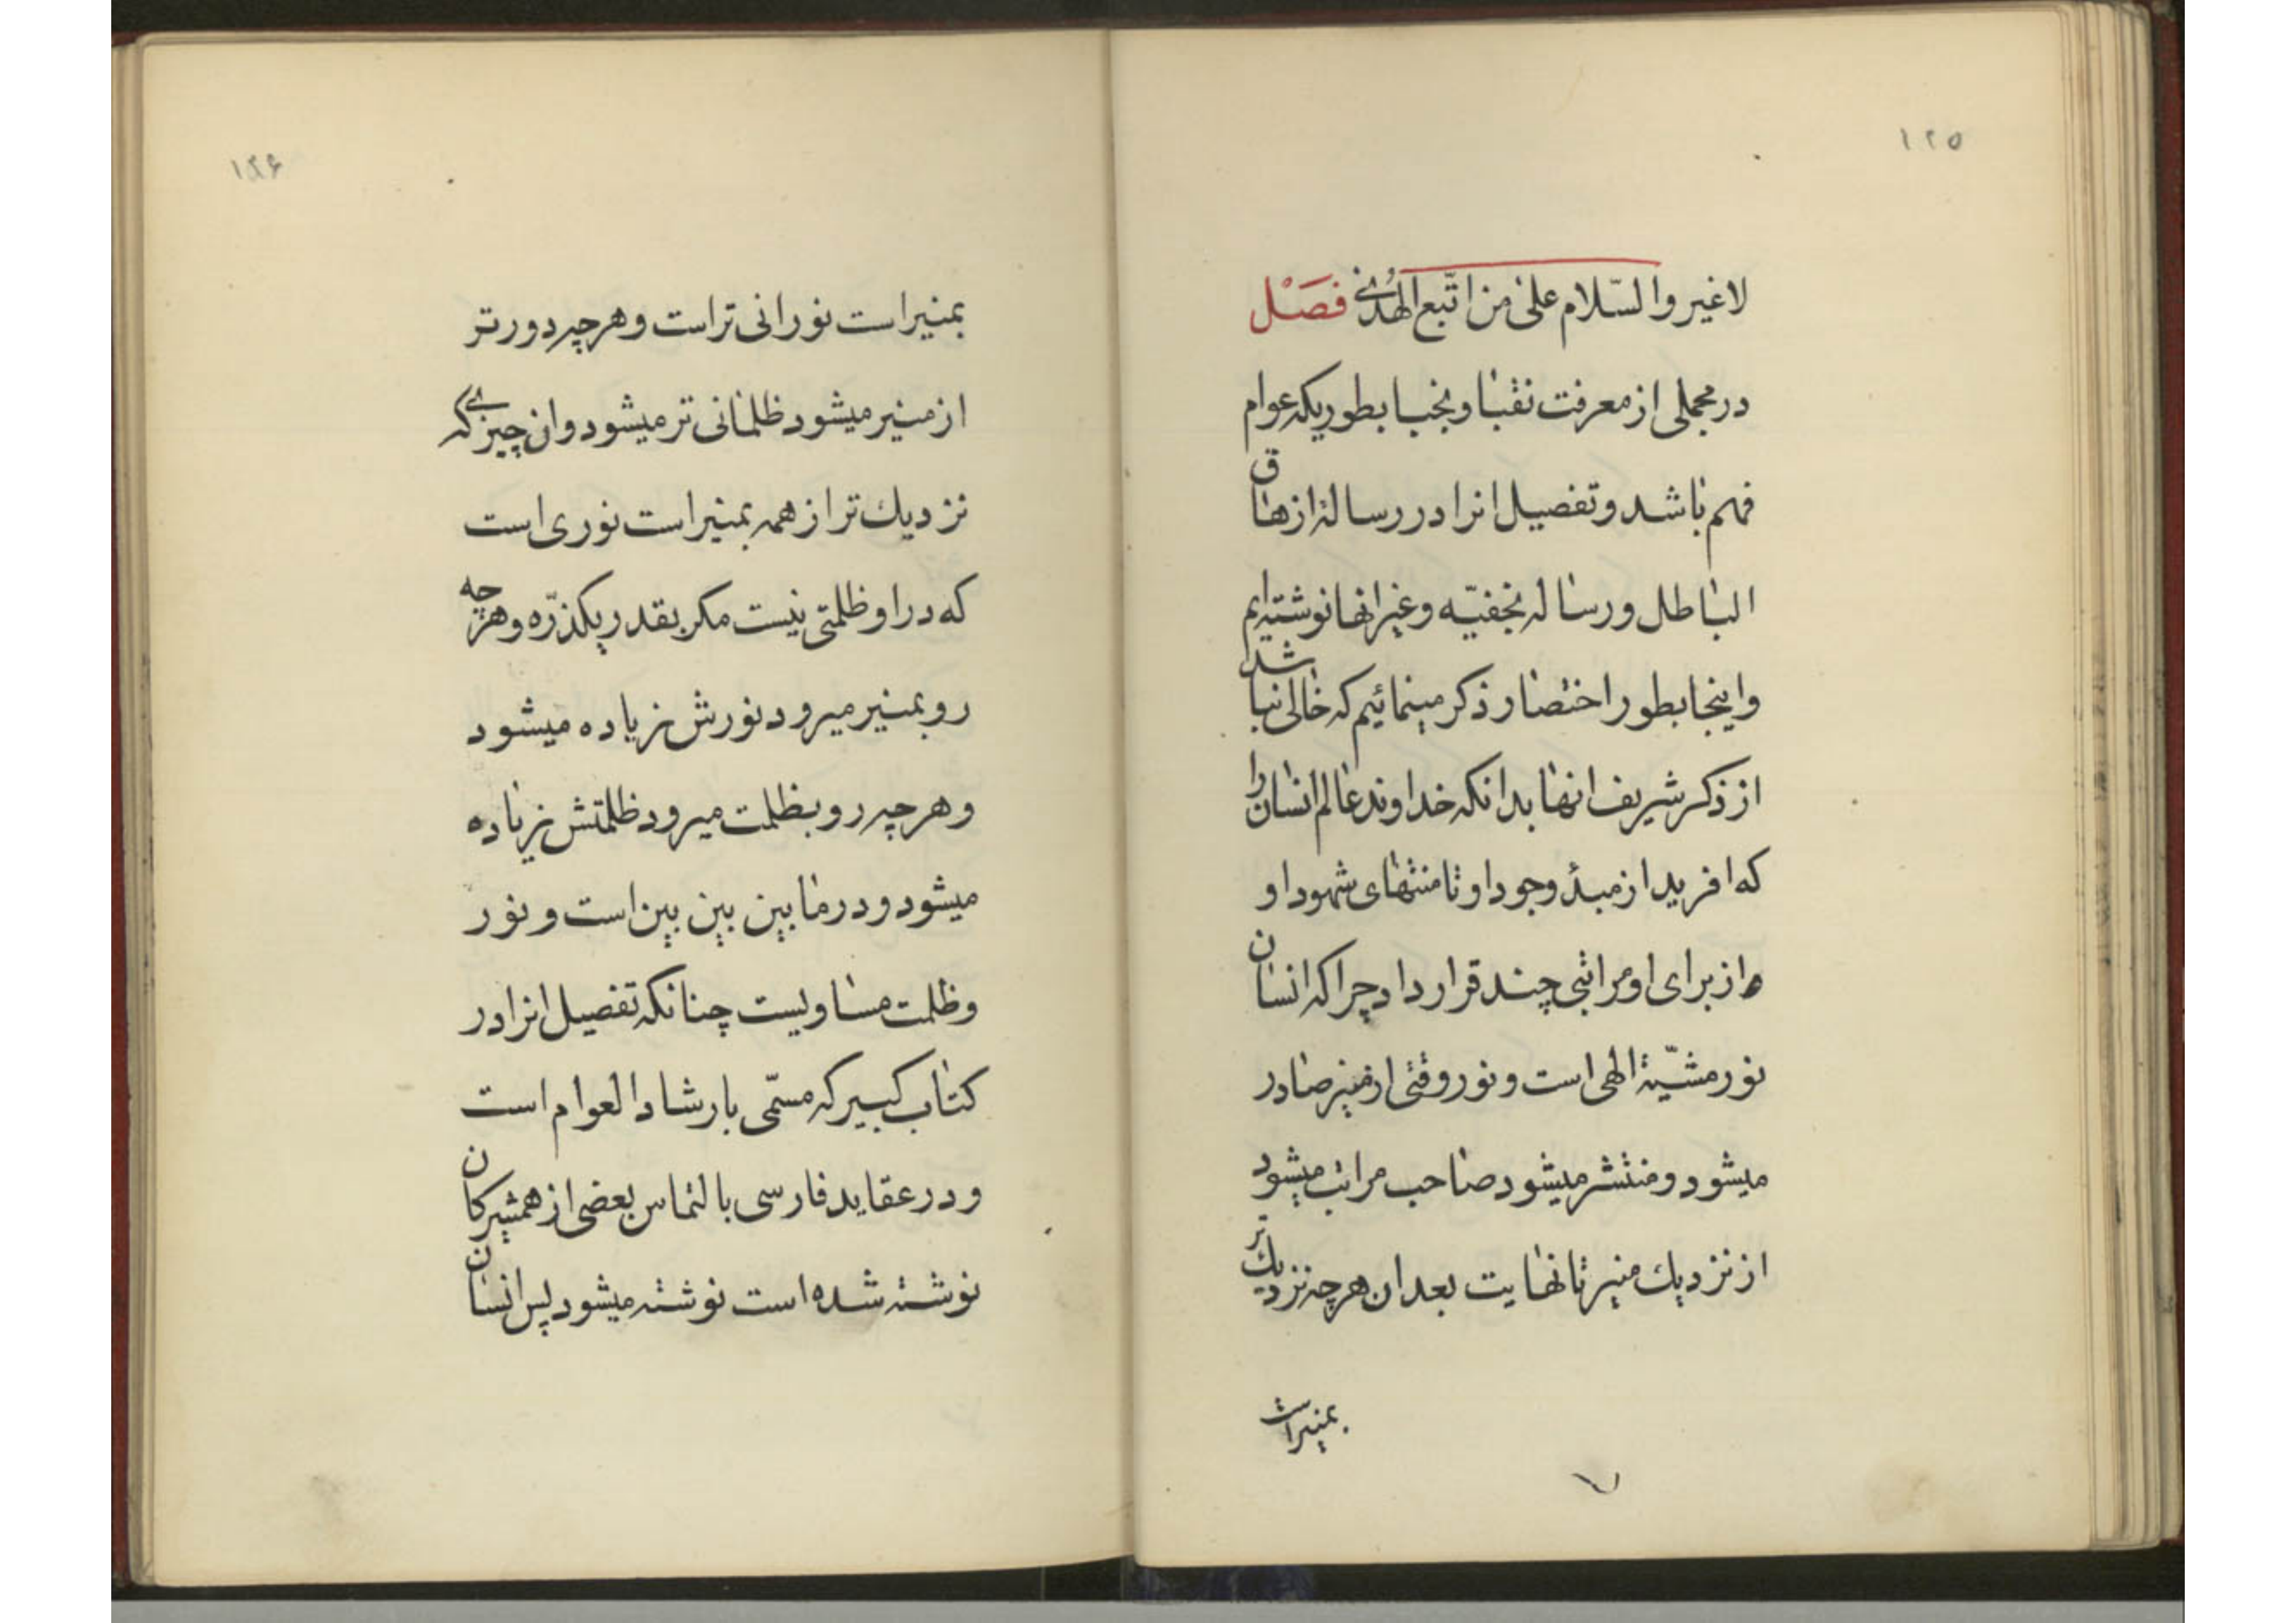 ۱۲۵
لاغیر والسّلام علی من اتّبع الهدی فَصْل
در مجملی از معرفت نقبا و نجبا بطوریکه عوام
فهم باشد و تفصیل انرا در رساله ازهاق
الباطل و رساله نجفیّه و غیر انها نوشته‌ایم
و اینجا بطور اختصار ذکر مینمائیم که خالی نباشد
از ذکر شریف انها بدانکه خداوند عالم انسان را
که افرید از مبدأ وجود او تا منتهای شهود او
از برای او مراتبی چند قرار داد چرا که انسان
نور مشیّة الهی است و نور وقتی از منیر صادر
میشود و منتشر میشود صاحب مراتب میشود
از نزدیك منیر تا نهایت بعد ان هرچه نزدیك تر
بمنیر است
۱۲۶
بمنیر است نورانی تر است و هرچه دورتر
از منیر میشود ظلمانی تر میشود و ان چیزی که
نزدیك تر از همه بمنیر است نوری است
که در او ظلمتی نیست مکر بقدر یکذرّه و هرچه
رو بمنیر میرود نورش زیاده میشود
و هرچه رو بظلمت میرود ظلمتش زیاده
میشود و در مابین بین بین است و نور
و ظلمت مساویست چنانکه تفصیل انرا در
کتاب کبیر که مسمّی بارشاد العوام است
و در عقاید فارسی بالتماس بعضی از همشیرکان
نوشته شده است نوشته میشود پس انسان